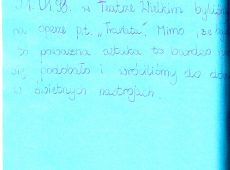 .01.98. w Teatrze Wielkim byliśmy
na operze pt. „Traviata”. Mimo, że
to poważna sztuka to bardzo
się podobało i wróciliśmy do
w świetnych nastrojach.